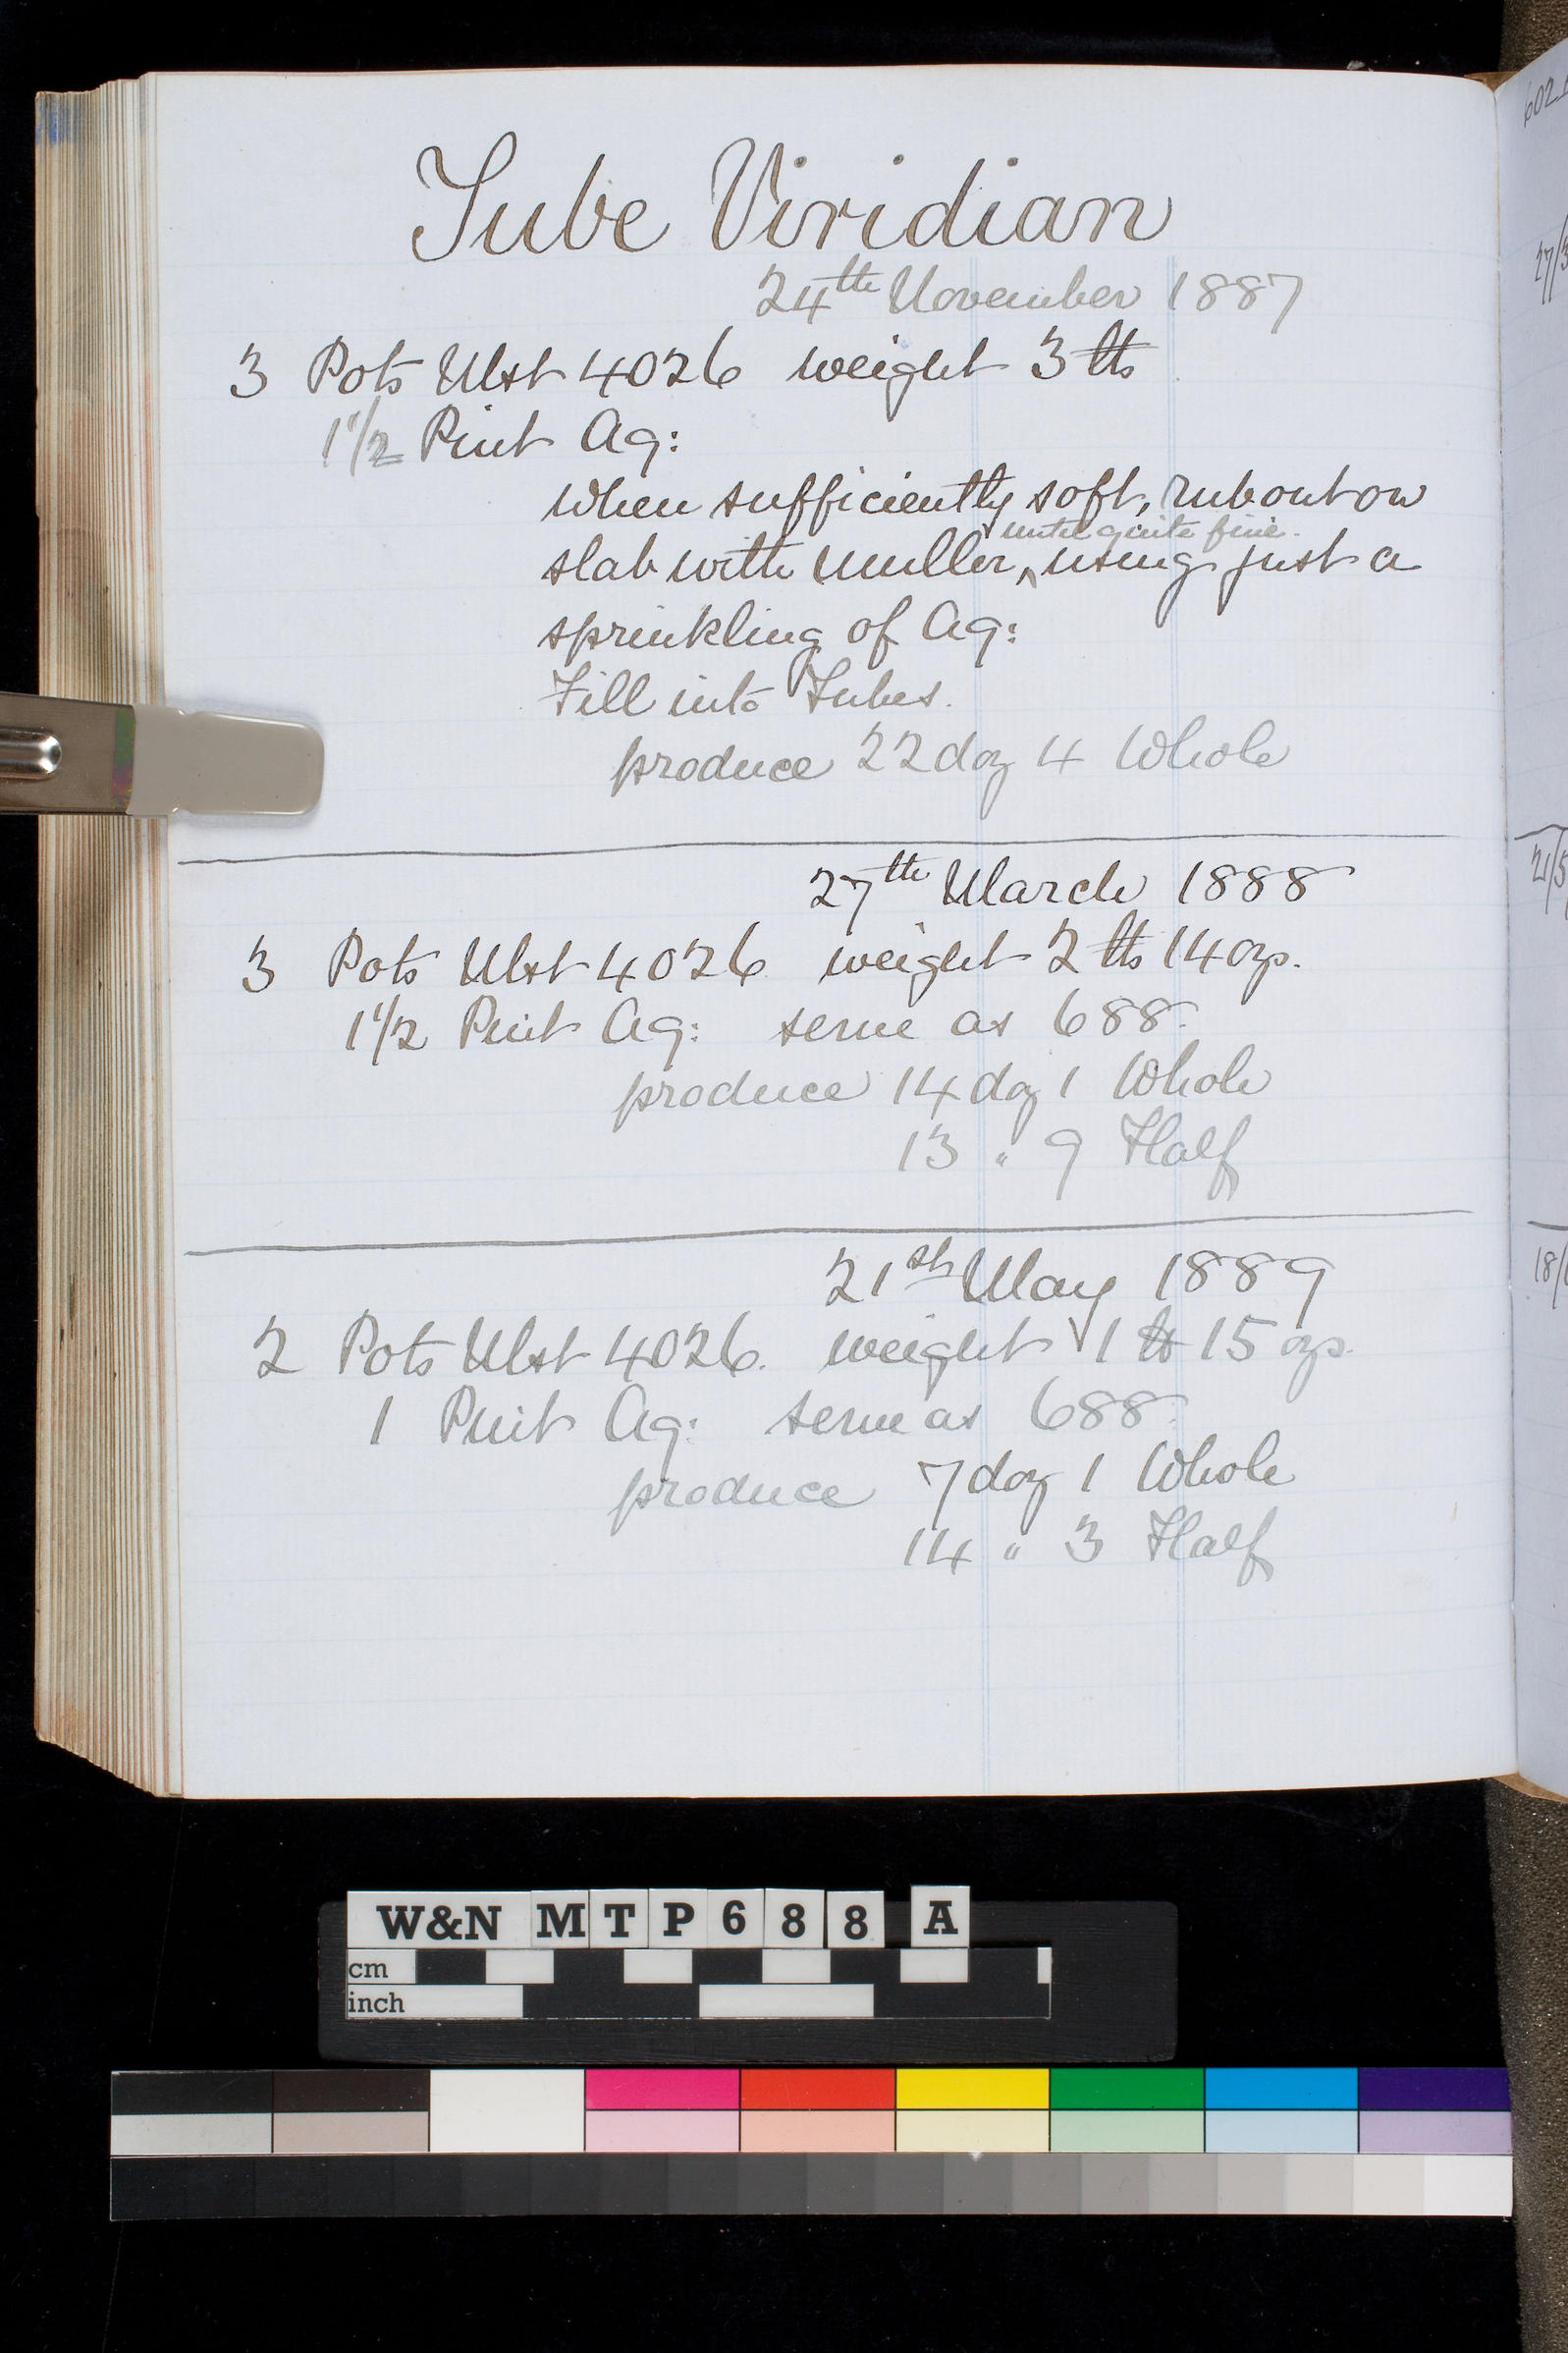 Tube Viridian
24th November 1887
3 Pots Mst 4026 weight 3 lbs
1 1/2 Pint Aq:
When sufficiently soft, rub out on
until quite fine.
slab with muller, ^ using just a
sprinkling of Aq:
Fill into Tubes.
produce 22 doz 4 Whole
27th March 1888
3 Pots Mst 4026 weight 2 lbs 14 ozs.
1 1/2 Pint Aq: same as 688.
produce 14 doz 1 Whole
13 " 9 Half
21st May 1889
2 Pots Mst 4026. weight 1 lb 15 ozs.
1 Pint Aq: same as 688.
produce 7 doz 1 Whole
14 " 3 Half
602
27/3
21/5
18/
W&N MTP688 A
cm
inch